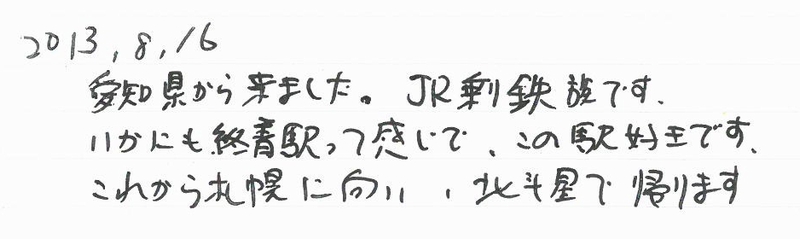 2013,8,16
愛知県から来ました。JR乗鉄族です.
いかにも終着駅って感じで、この駅好きです.
これから札幌に向い、北斗星で帰ります